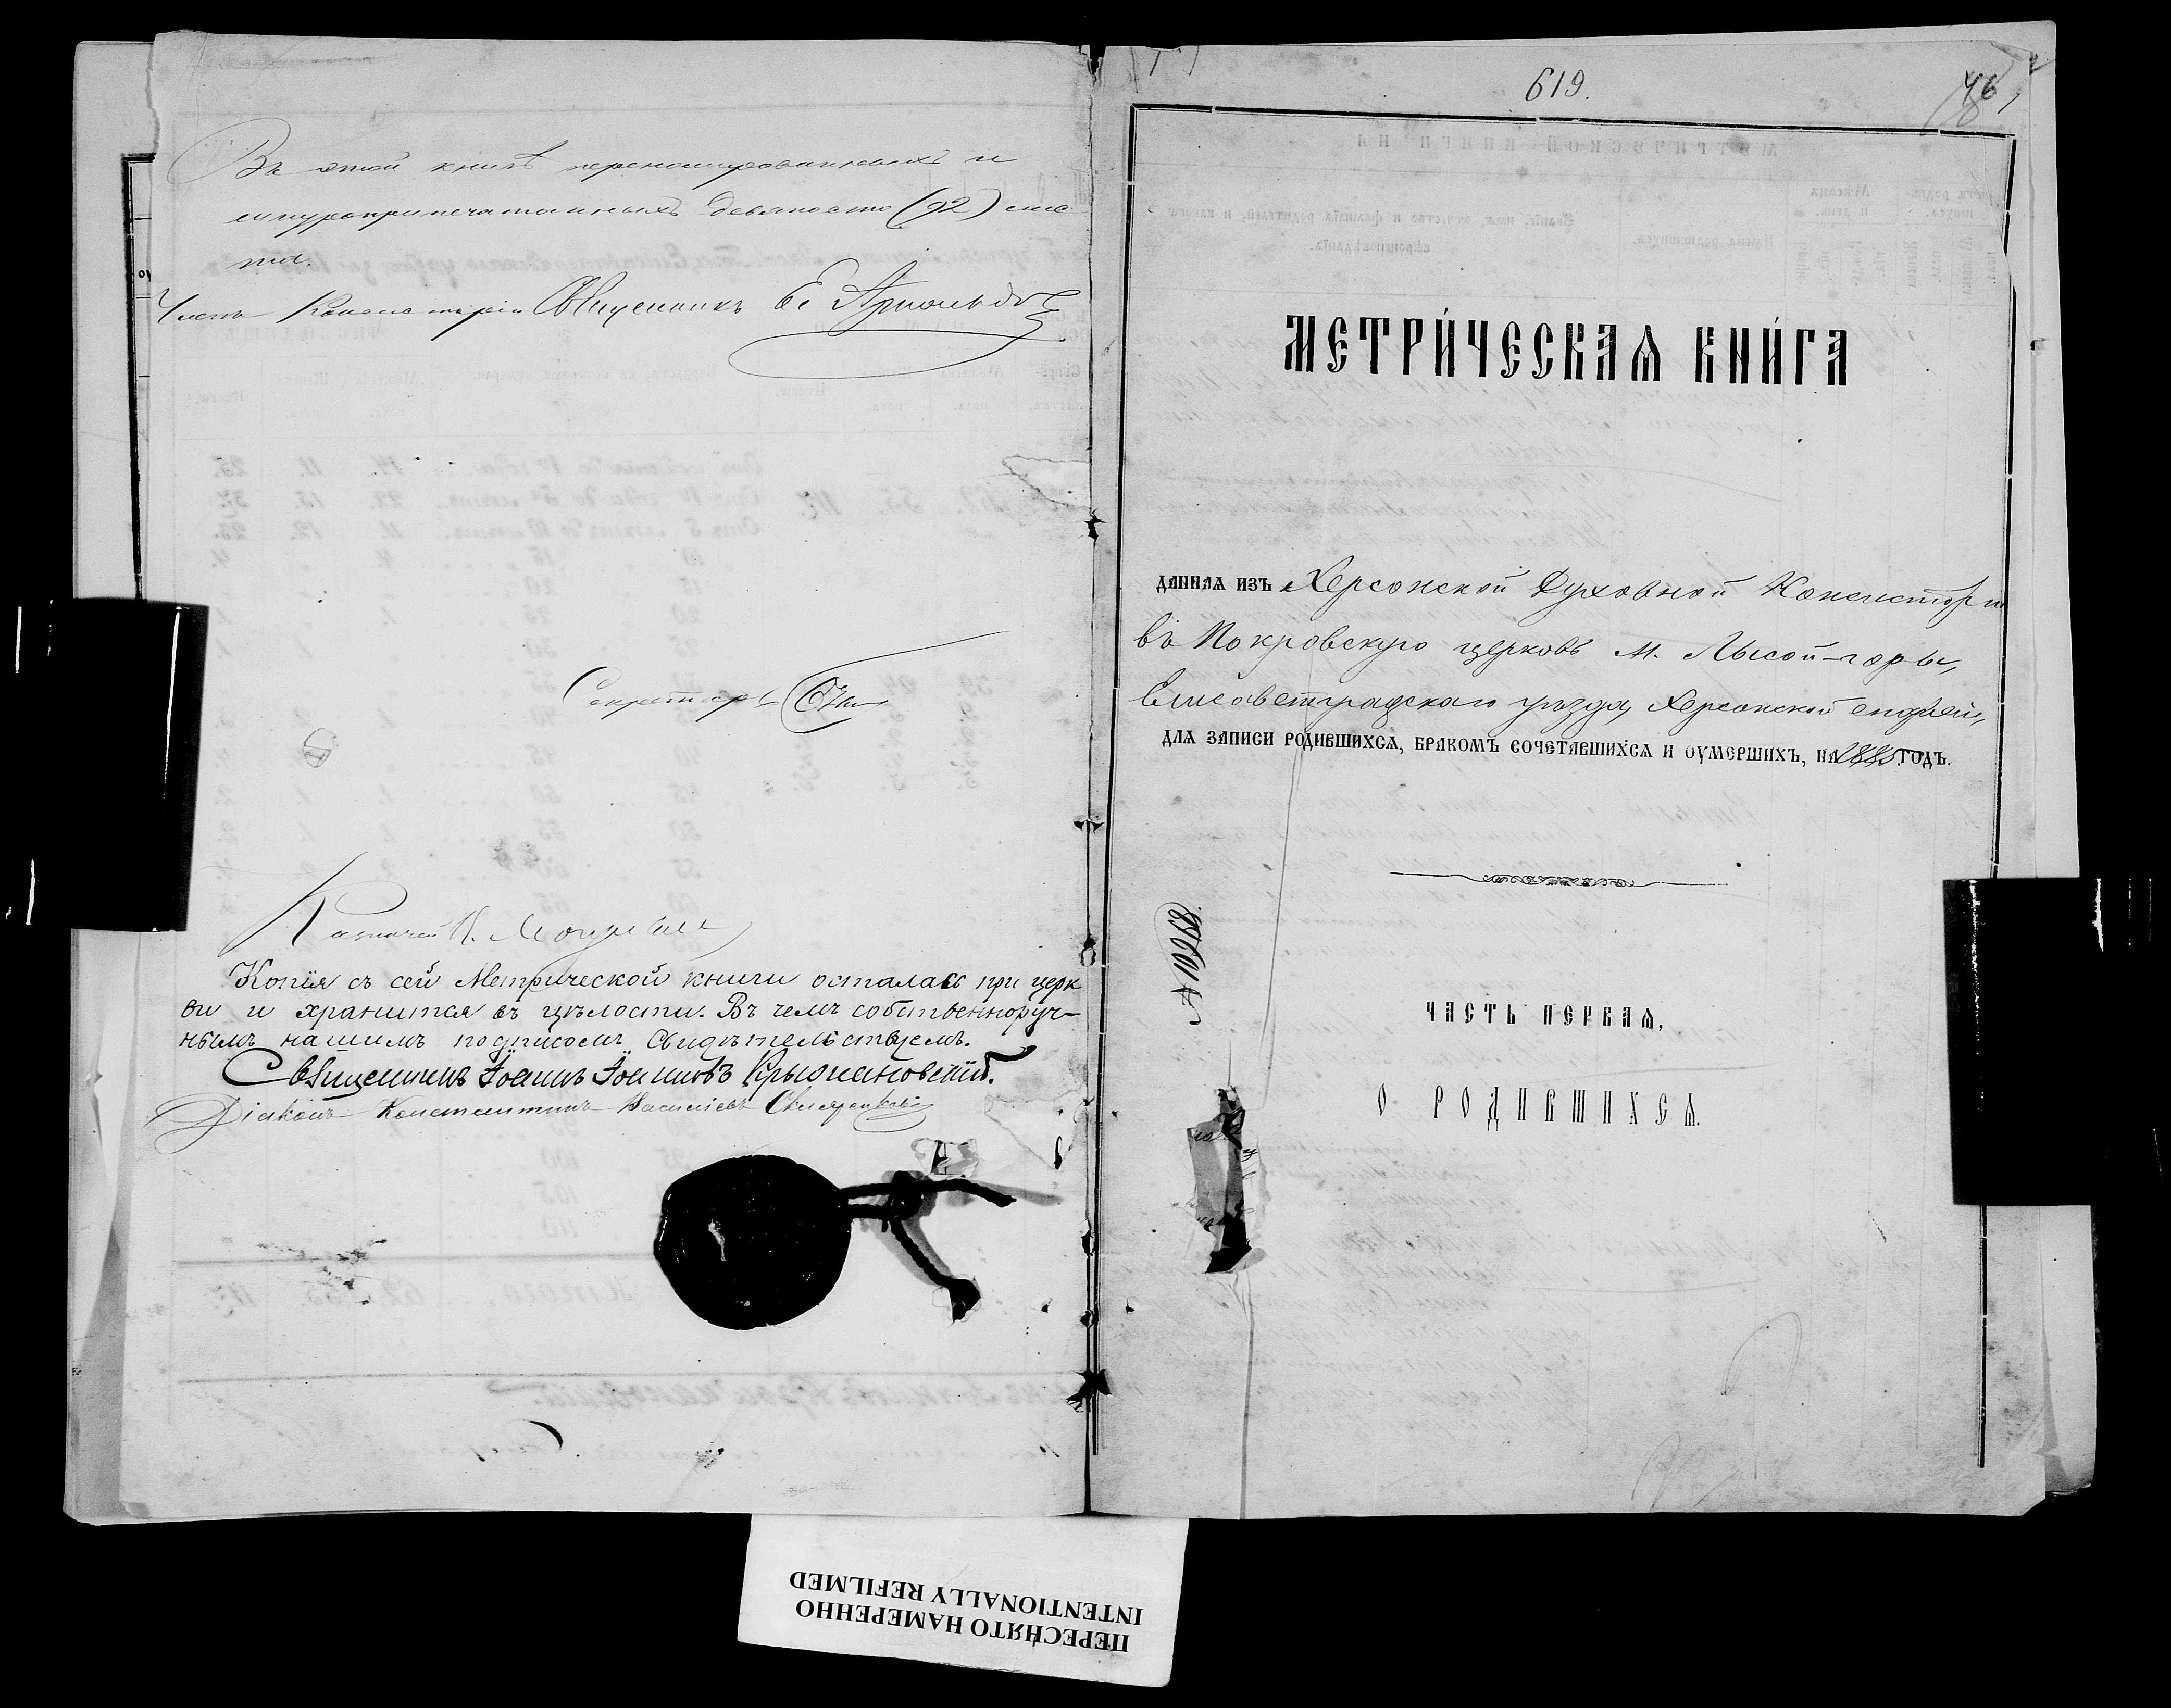 Въ этой книгѣ перенумерованныхъ и
шнуроприпечатанныхъ девяносто (92) лис
та.
Членъ Консисторіи Священникъ Ев Арнольдовъ
Секретарь
Казначей
Копія съ сей Метрической книги осталась при церк
ви и хранится въ цѣлости. Въ чемъ собственноруч-
нымъ нашимъ подписомъ свидѣтельствуемъ.
Священникъ Іоаннъ Іоанновъ Крыжановскій.
Діаконъ Константинъ Василіевъ
619.
46
МЕТРИ́ЧЕСКАѦ КНИ́ГА
ДАННАѦ ИЗЪ Херсонской Духовной Консисторіи
въ Покровскую церковь м. Лысой-горы,
Елисаветградскаго уѣзда, Херсонской епархіи,
ДЛѦ ЗАПИСИ РОДИВШИХСѦ, БРАКОМЪ СОЧЕТАВШИХСѦ И ОУМЕРШИХЪ, НА 1885 ГОДЪ.
ЧАСТЬ ПЕРВАѦ,
О РОДИВШИХСѦ.
ПЕРЕСНЯТО НАМЕРЕННО
INTENTIONALLY REFILMED